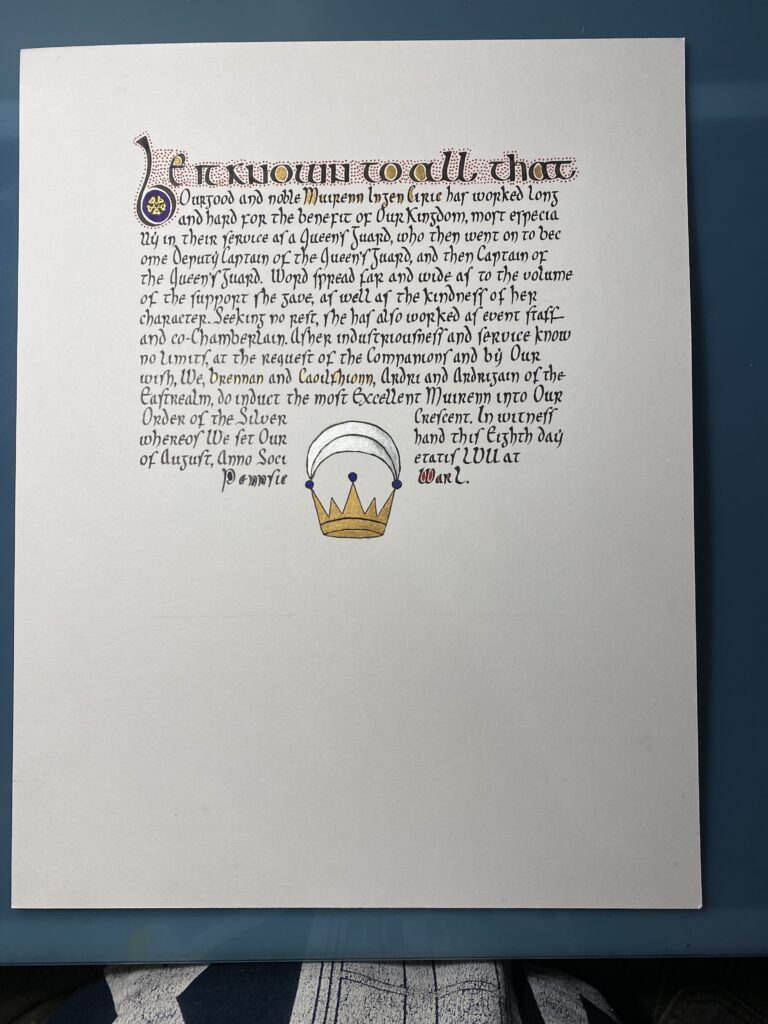 be it known to all that
Our good and noble Muirenn Ingen Ciric has worked long
and hard for the benefit of Our Kingdom, most especia
lly in their service as a Queen's Guard, who then went on to bec
ome Deputy Captain of the Queen's Guard, and then Captain of
the Queen's Guard. Word spread far and wide as to the volume
of the support she gave, as well as the kindness of her
character. Seeking no rest, she has also worked as event staff
and co-Chamberlain. As her industriousness and service know
no limits, at the request of the Companions and by Our
wish, We, Brennan and Caoilfhionn, Ardri and Ardrigain of the
Eastrealm, do induct the most Excellent Muirenn into Our
Order of the Silver Crescent. In witness
whereof We set Our hand this Eighth day
of August, Anno Soci etatis LVII at
Pennsic War L.